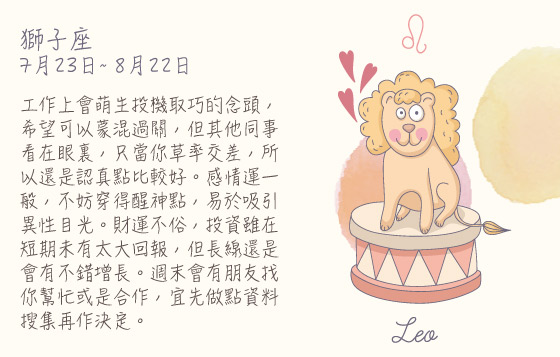 獅子座
7月23日~ 8月22日
工作上會萌生投機取巧的念頭，
希望可以蒙混過關，但其他同事
看在眼裏，只當你草率交差，所
以還是認真點比較好。感情運一
般，不妨穿得醒神點，易於吸引
異性目光。財運不俗，投資雖在
短期未有太大回報，但長線還是
會有不錯增長。週末會有朋友找
你幫忙或是合作，宜先做點資料
搜集再作決定。
Leo